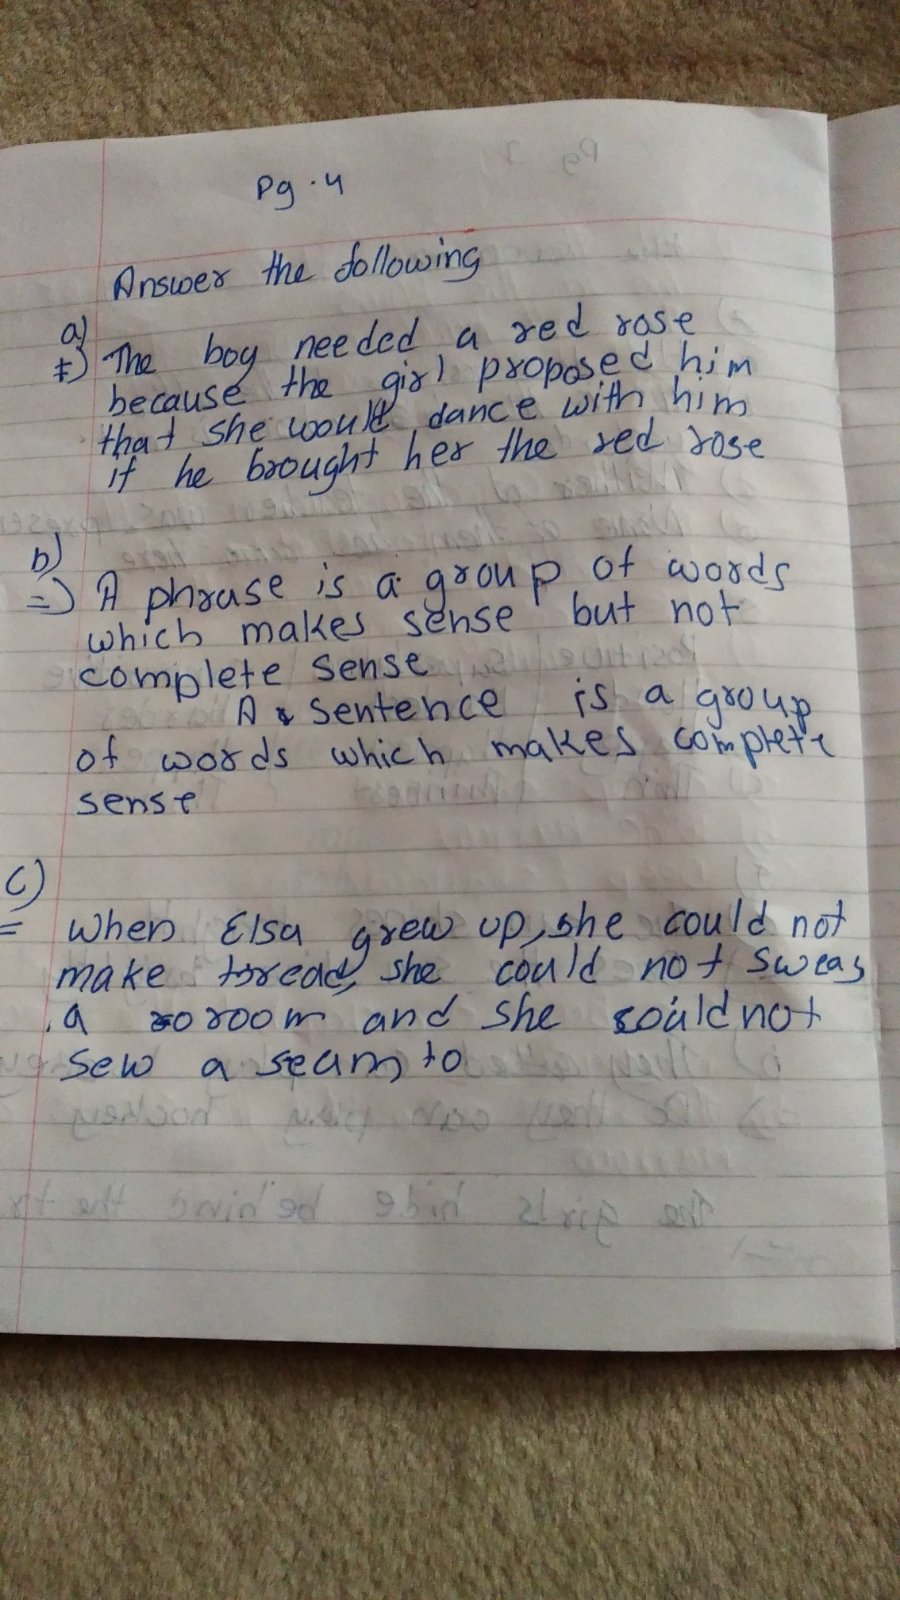 Pg. 4
Answer the following
a)
=) The boy needed a red rose
because the girl proposed him
that she would dance with him
if he brought her the red rose
b)
=) A phrase is a group of words
which makes sense but not
complete sense
A sentence is a group
of words which makes complete
sense
c)
= When Elsa grew up, she could not
make bread, she could not sweas
a room and she could not
sew a seam to